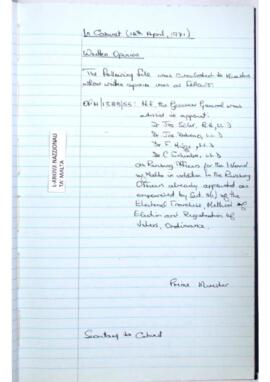 In Cabinet (16th April, 1971)
Written Opinion
The following file was circulated to Ministers
whose written opinion was as follows:
H.E. the Governor General was
advised to appoint:
Dr Joe
Dr
Dr F.
Dr C.
as Revising Officers for the Island
of Malta in addition to the Revising
Officers already appointed as
empowered by Sect. of the
Electoral Franchise, Method of
Election and Registration of
Voters, Ordinance.
Prime Minister
Secretary to Cabinet
L-ARKIVJI NAZZJONALI
TA' MALTA